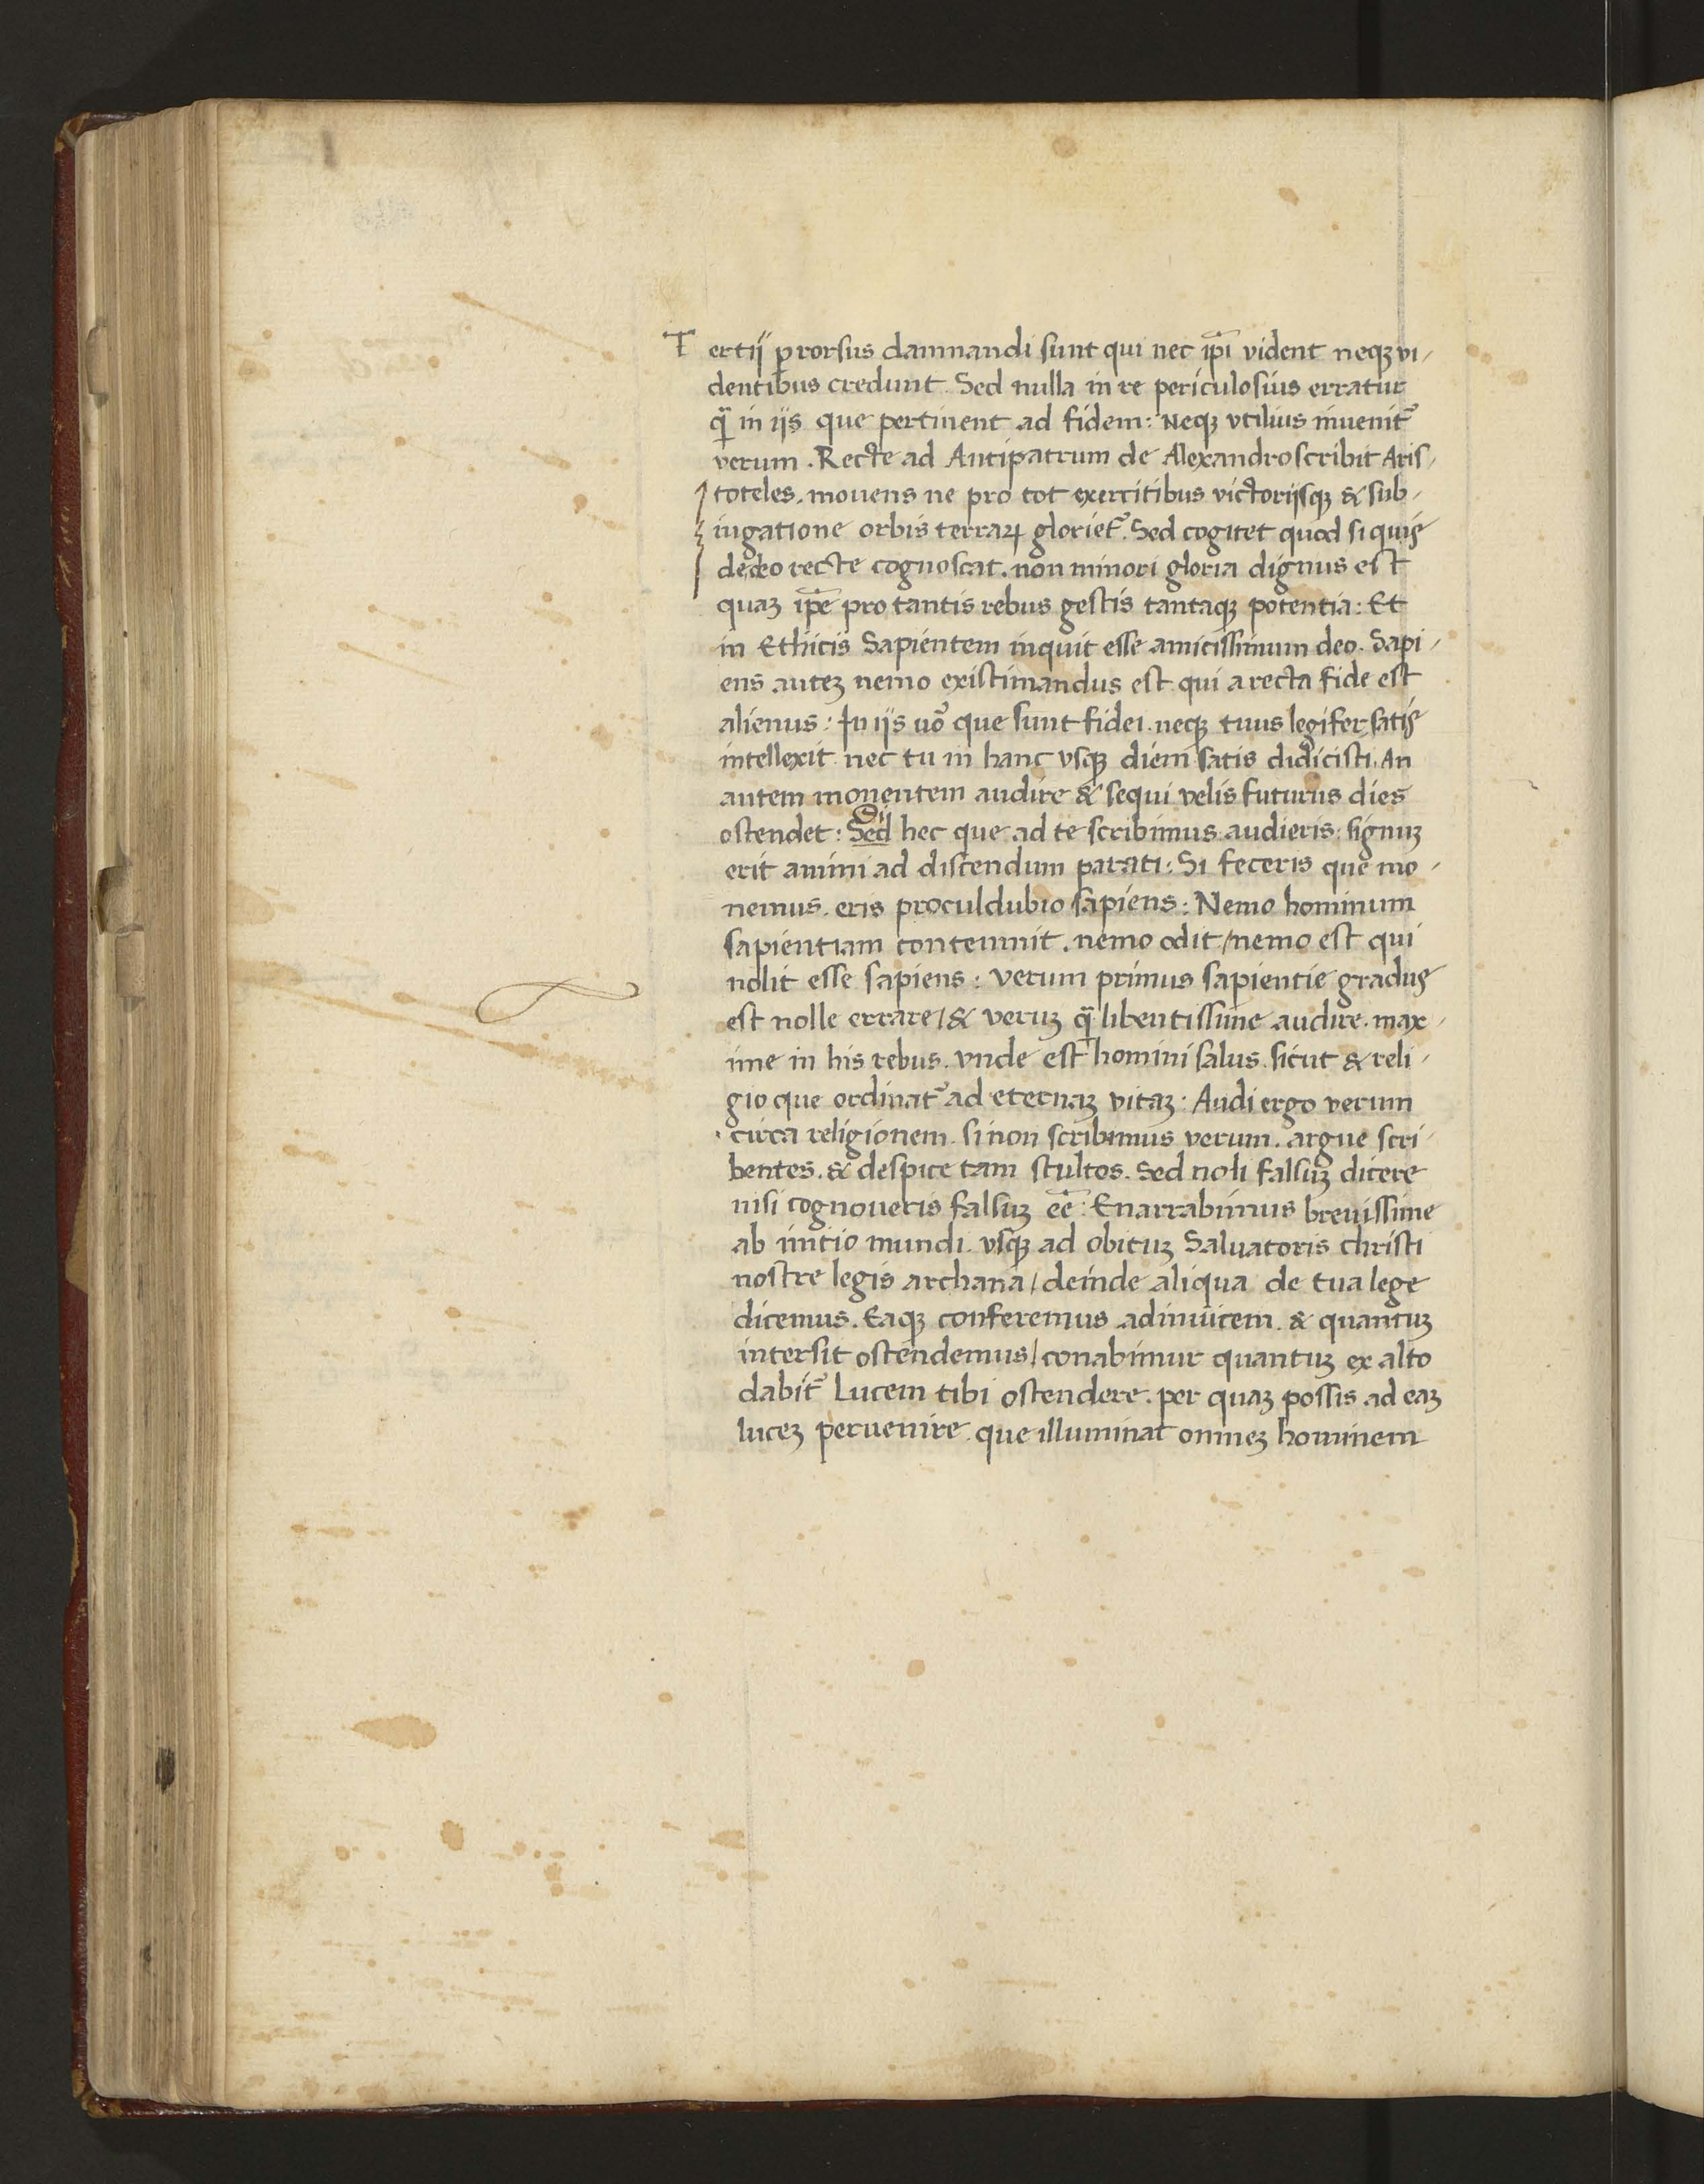 Tertij prorsus damnandi sunt qui nec ip̃i vident neqꝫ vi/
dentibus credunt. Sed nulla in re periculosius erratur
q̃ in ijs que pertinent ad fidem: Neqꝫ vtilius inuenit᷑
verum. Recte ad Antipatrum de Alexandro scribit Aris/
toteles. mouens ne pro tot exercitibus victorijsqꝫ & sub/
iugatione orbis terraꝝ gloriet᷑. Sed cogitet quod si quis
de deo recte cognoscat. non minori gloria dignus est
quaꝫ ip̃e pro tantis rebus gestis tantaqꝫ potentia: Et
in Ethicis Sapientem inquit esse amicissimum deo. Sapi/
ens auteꝫ nemo existimandus est qui a recta fide est
alienus: In ijs uo᷑ que sunt fidei. neqꝫ tuus legifer satis
intellexit nec tu in hanc vsqꝫ diem satis didicisti. An
autem monentem audire & sequi velis futurus dies
ostendet: Sed hec que ad te scribimus audieris: signuꝫ
erit animi ad discendum parati: Si feceris que mo/
nemus. eris proculdubio sapiens: Nemo hominum
sapientiam contemnit. nemo odit/nemo est qui
nolit esse sapiens: verum primus sapientie gradus
est nolle errare/& veruꝫ q̃ libentissime audire. max/
ime in his rebus. vnde est homini salus. sicut & reli/
gio que ordinat᷑ ad eternaꝫ vitaꝫ: Audi ergo verum
circa religionem. si non scribimus verum. argue scri/
bentes. & despice tam stultos. Sed noli falsuꝫ dicere
nisi cognoueris falsuꝫ eẽ: Enarrabimus breuissime
ab initio mundi. vsqꝫ ad obituꝫ Saluatoris christi
nostre legis archana/deinde aliqua de tua lege
dicemus. Eaqꝫ conferemus adinuicem. & quantuꝫ
intersit ostendemus/conabimur quantuꝫ ex alto
dabit᷑ Lucem tibi ostendere. per quaꝫ possis ad eaꝫ
luceꝫ peruenire. que illuminat omneꝫ hominem